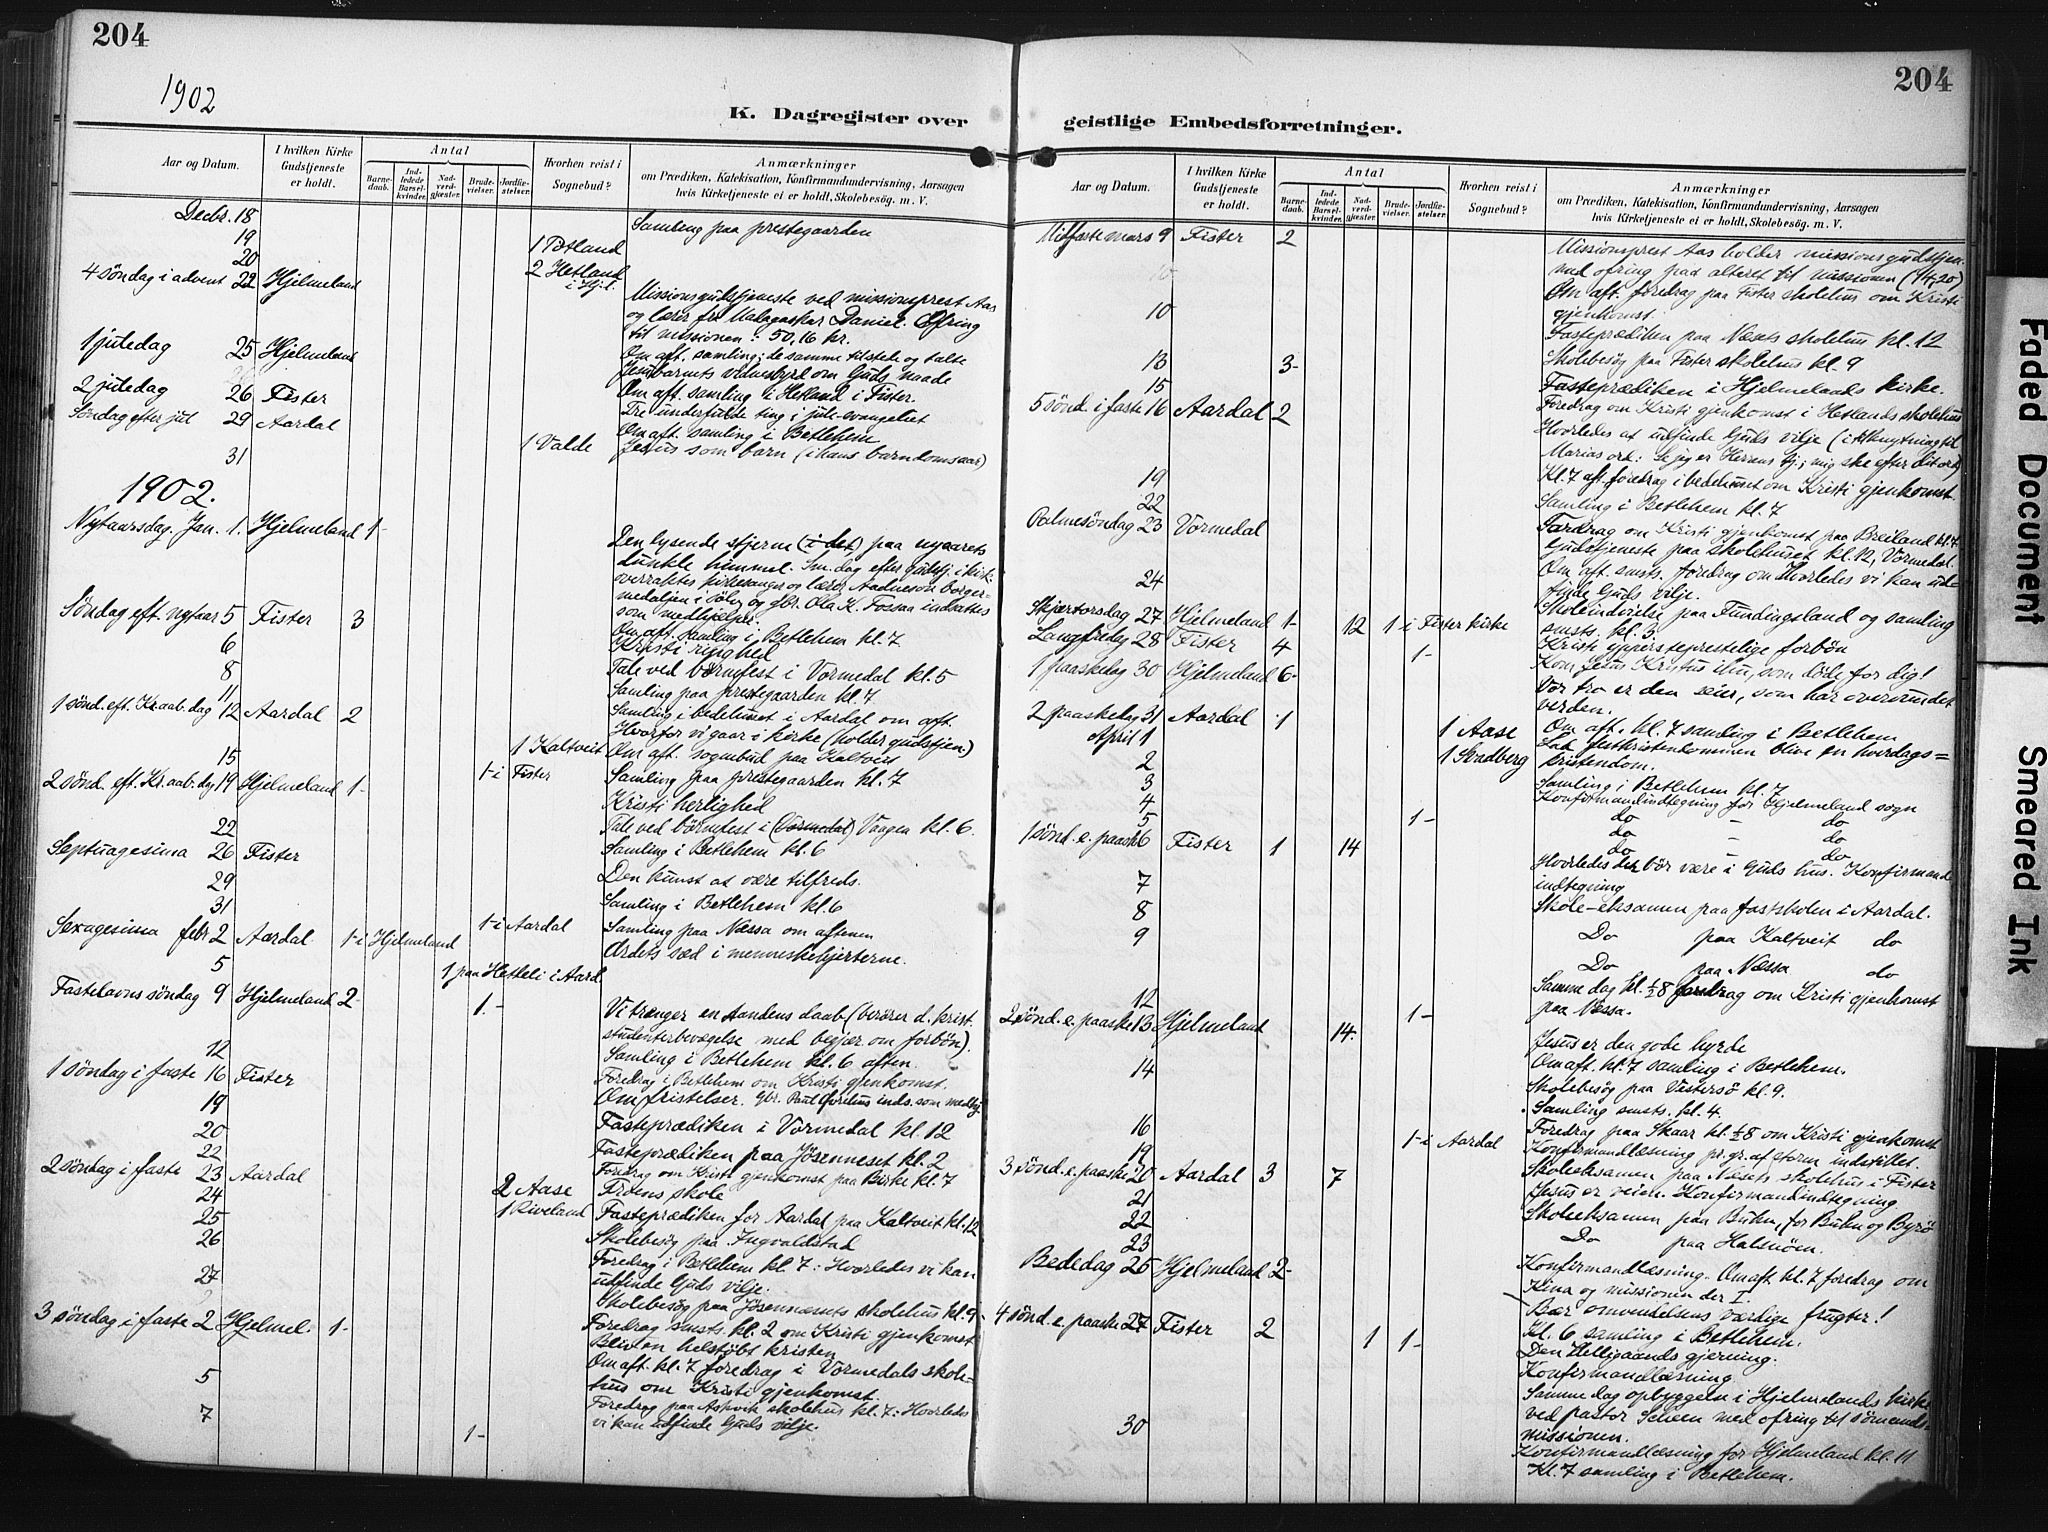 204
1902
K. Dagregister over
Aar og Datum.
I hvilken Kirke Gudstjeneste er holdt.
Antal
Barnedaab.
Indledede Barselkvinder.
Nadverdgjæster.
Brudevielser.
Jordfæstelser.
Hvorhen reist i Sognebud?
Anmærkninger
om Prædiken, Katekisation, Konfirmandundervisning, Aarsagen
hvis Kirketjeneste ei er holdt, Skolebesög. m. V.
Decbr. 18 Samling paa prestegaarden
19 1 Tøtland
20 2 Hetland i Hjl.
4 söndag i advent 22 Hjelmeland
Missionsgudstjeneste ved missionsprest Aas
og lærer fra Madagaskar Daniel. Ofring
til missionen: 50,16 kr.
1 juledag 25 Hjelmeland
Om aft. samling; de samme tilstede og talte
Jesubarnets vidnesbyrd om Guds naade
2 juledag 26 Fister
Om aft. samling i Hetland i Fister.
Tre underfulde ting i jule-evangeliet
Söndag efter jul 29 Aardal
Om aft. samling i Betlehem
1 Valde Jesus som barn (i hans barndomsaar)
31
1902.
Nytaarsdag. Jan. 1. Hjelmeland 1-
Den lysende stjerne (i det) paa nyaarets
dunkle himmel. Sm. dag efter gudstj. i kirk.
overraktes kirkesanger og lærer Aadnesön borger-
medaljen i sölv og gbr. Ola K. Fossaa indsattes
som medhjelper.
Söndag eft. nytaar 5 Fister 3
Om aft. samling i Betlehem kl. 7
Kristi ringhed
6 Tale ved börnefest i Vormedal kl. 5
8 Samling paa prestegaarden kl. 7
11 Samling i bedehuset i Aardal om aft.
1 sönd. eft. Kr.aab.dag 12 Aardal 2
Hvorfor vi gaar i kirke (holder gudstjen.)
1 Kaltveit Om aft. sognebud paa Kaltveit
15 Samling paa prestegaarden kl. 7
2 sönd. eft. Kr.aab.dag 19 Hjelmeland 1- 1- i Fister
Kristi herlighed
Tale ved börnefest i (Vormedal) Vaagen kl. 6.
22 Samling i Betlehem kl. 6
Septuagesima 26 Fister
Den kunst at være tilfreds.
29 Samling i Betlehem kl. 6
31 1- i Aardal Samling paa Næssa om aftenen
Sexagesima febr 2 Aardal 1- i Hjelmeland
Ordets sæd i menneskehjerterne.
5 1 paa Hetteli i Aard.
Fastelavns söndag 9 Hjelmeland 2- 1.-
Vi trænger en Aandens daab (berörer d. krist.
studenterbevægelse med begjær. om forbön).
12 Samling i Betlehem kl. 6 aften.
Foredrag i Betlehem om Kristi gjenkomst.
1 söndag i faste 16 Fister
Om fristelser. Gbr. inds. som medhj.
19 Fasteprædiken i Vormedal kl. 12
20 Fasteprædiken paa Jösenneset kl. 2
22 Foredrag om Kristi gjenkomst paa Birke kl. 7
2 söndag i faste 23 Aardal 2 Aase Troens skole
24 1 Riveland Fasteprædiken for Aardal paa Kaltveit kl. 12
25 Skolebesög paa Ingvaldstad
26 Foredrag i Betlehem kl. 7: Hvorledes vi kan
udfinde Guds vilje.
27 Skolebesög paa Jösennæsets skolehus kl. 9-
Foredrag smsts. kl. 2 om Kristi gjenkomst
3 söndag i faste 2 Hjelmel. 1-
Bliv en helstöbt kristen
Om aft. kl. 7 foredrag i Vormedals skole-
hus om Kristi gjenkomst.
5 Foredrag paa Askvik skolehus kl. 7: Hvorledes
vi kan udfinde Guds vilje.
7 1-
204
geistlige Embedsforretninger.
Aar og Datum.
I hvilken Kirke Gudstjeneste er holdt.
Antal
Barnedaab.
Indledede Barselkvinder.
Nadverdgjæster.
Brudevielser.
Jordfæstelser.
Hvorhen reist i Sognebud?
Anmærkninger
om Prædiken, Katekisation, Konfirmandundervisning, Aarsagen
hvis Kirketjeneste ei er holdt, Skolebesög. m. V.
Midfaste mars 9 Fister 2
Missionsprest Aas holder missionsgudstjen.
med ofring paa alteret til missionen (74,20)
Om aft. foredrag paa Fister skolehus om Kristi
gjenkomst.
10 Fasteprædiken paa Næsets skolehus kl. 12
Skolebesög paa Fister skolehus kl. 9
13 3- Fasteprædiken i Hjelmelands kirke.
15 Foredrag om Kristi gjenkomst i Hetlands skolehus
5 sönd. i faste 16 Aardal 2
Hvorledes at udfinde Guds vilje (i tilknytning til
Marias ord: Se jeg er Herrens tj.; mig ske efter dit ord)
Kl. 7 aft. foredrag i bedehuset om Kristi gjenkomst
19 Samling i Betlehem kl. 7
22 Foredrag om Kristi gjenkomst paa Breiland kl. 7
Palmesöndag 23 Vormedal
Gudstjeneste paa skolehuset kl. 12, Vormedal.
Om aft. smsts. foredrag om Hvorledes vi kan ud-
finde Guds vilje.
24 Skoleindvielse paa Fundingsland og samling
smsts. kl. 3
Skjærtorsdag 27 Hjelmeland 1- 12 1- i Fister kirke
Kristi yppersteprestelige forbön
Langfredag 28 Fister 4 1-
Kom Jesus Kristus ihu, som döde for dig!
1 paaskedag 30 Hjelmeland 6-
Vor tro er den seier, som har overvundet
verden.
2 paaskedag 31 Aardal 1 1 Aase
Om aft. kl. 7 samling i Betlehem
April 1 1 Svadberg
Lad festkristendommen blive en hverdags-
kristendom.
2 Samling i Betlehem kl. 7
3 Konfirmandindtegning for Hjelmeland sogn
4 do - do
5 1- do - do
do - do
1 sönd. e. paaske 6 Fister 1 14
Hvorledes der bör være i Guds hus. Konfirmand
indtegning
7 Skole-eksamen paa fastskolen i Aardal.
8 Do paa Kaltveit do
9 Do paa Næssa do
Samme dag kl. ½8 foredrag om Kristi gjenkomst
paa Næssa.
12
2 sönd. e. paaske 13 Hjelmeland 14. 1-
Jesus er den gode hyrde
Om aft. kl. 7 samling i Betlehem.
14 Skolebesög paa Vestersö kl. 9.
Samling smsts. kl. 4.
16 Foredrag paa Skaar kl. ½8 om Kristi gjenkomst
19 1- i Aardal Konfirmandlæsning pr. gr. af storm indstillet.
Skoleeksamen paa Næsets skolehus i Fister
3 sönd. e. paaske 20 Aardal 3 7
Jesus er veien. Konfirmandindtegning
21 Skoleeksamen paa Buhn, for Buhn og Byrö
22 Do paa Halsnöen.
23 Konfirmandlæsning. Om aft. kl. 7 foredrag om
Kina og missionen der I.
Bededag 25 Hjelmeland 2-
Bær omvendelsens værdige frugter!
Kl. 6 samling i Betlehem.
4 sönd. e. paaske 27 Fister 2 1 1-
Den Helligaands gjerning.
Konfirmandlæsning.
Samme dag opbyggelse i Hjelmelands kirke
ved pastor Scheen med ofring til sömands-
missionen.
30 Konfirmandlæsning for Hjelmeland kl. 11
Kl. 7 samling i Betlehem.
Faded Document
Smeared Ink